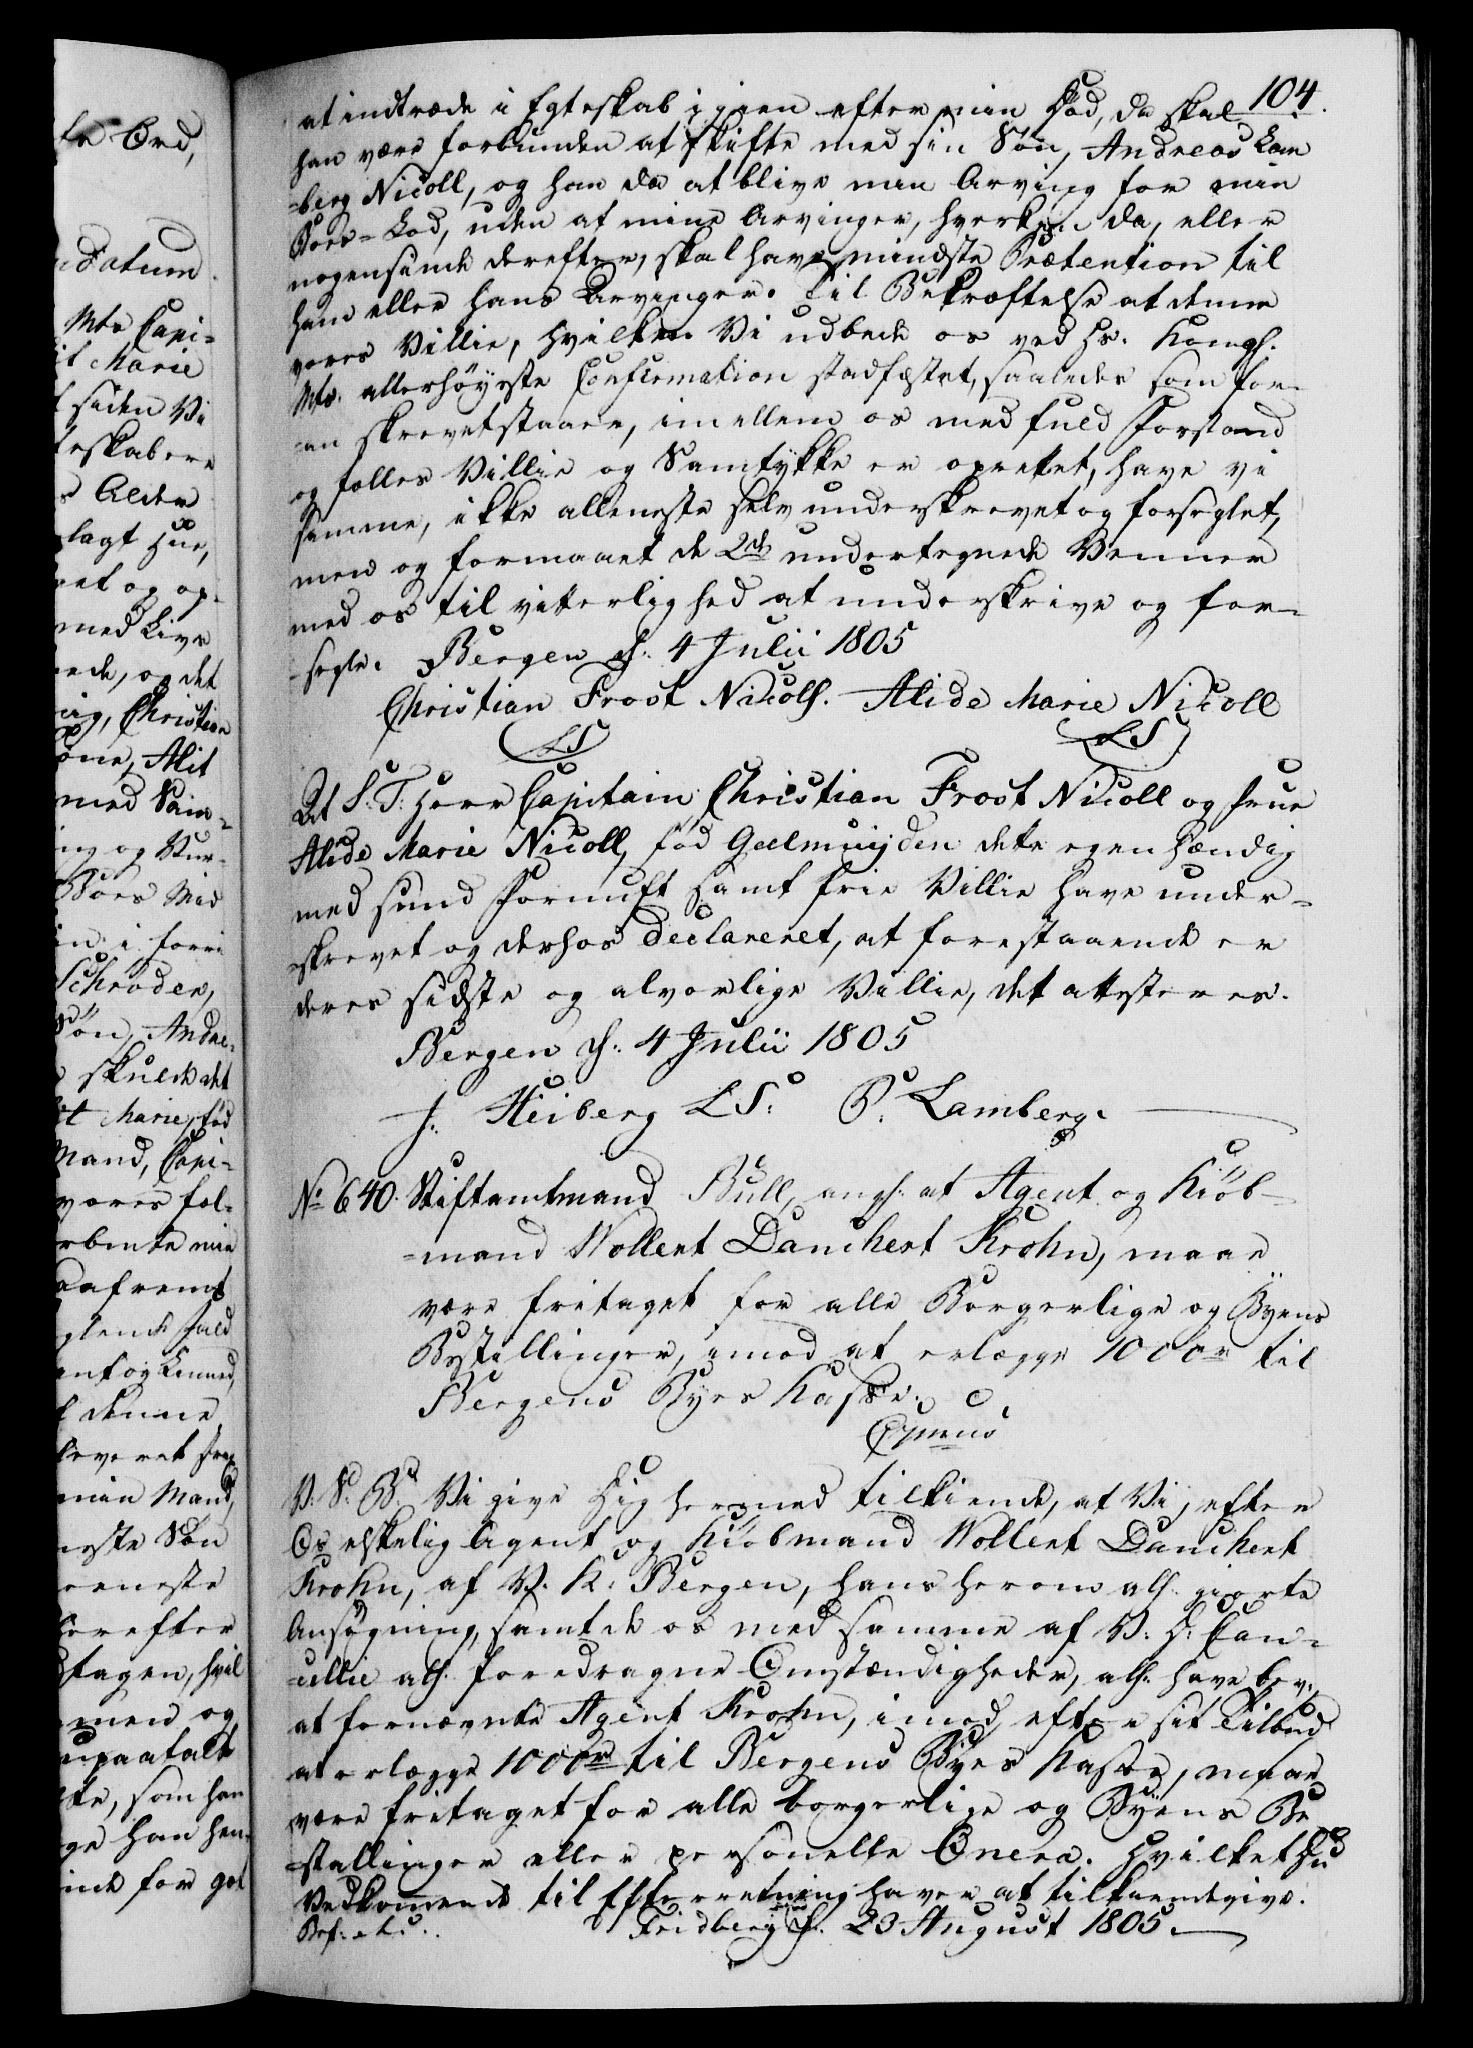 104.
at indtræde i Egteskab igien efter min Død, da skal
han være forbunden at skifte med sin Søn, Andreas Lam
=berg Nicoll, og han da at blive min Arving for min
Boes=Lod, uden at mine Arvinger, hverken da, eller
nogensinde derefter, skal have mindste Prætention til
ham eller hans Arvinger. Til Bekræftelse at denne
vores Villie, hvilken Vi udbede os ved Hs. Kongl.
Mts. allerhøyeste Confirmation stadfæstet, saaledes som for-
=an skrevet staaer, imellem os med fuld Forstand
og fælles Villie og Samtykke er oprettet, have vi
samme, ikke alleneste selv underskrevet og forseglet,
men og formaaet de 2de undertegnede Venner
med os til vitterlighed at underskrive og for-
=segle. Bergen d. 4 Julii 1805
Christian Frost Nicoll. Alide Marie Nicoll
LS LS
At S: T: Herr Capitain Christian Frost Nicoll og Frue
Alide Marie Nicoll, fød Geelmuijden dette egenhændig
med sund Fornuft samt frie Villie have under-
=skrevet og derhos declareret, at forestaaende er
deres sidste og alvorlige Villie, det attesteres.
Bergen d. 4 Julii 1805
J. Heiberg LS. P. Lamberg.
No 640. Stiftamtmand Bull, angl. at Agent og Kiøb-
=mand Wollert Danchert Krohn, maae
være fritaget for alle Borgerlige og Byens
Bestillinger, imod at erlægge 1000 rd til
Bergens Byes Kasse.

V. S. B. Vi give Dig hermed tilkiende, at Vi, efter
Os elskelig Agent og Kiøbmand Wollert Danchert
Krohn, af V. K: Bergen, hans herom all. giorte
Ansøgning, samt de os med samme af V. D. Can-
=cellie all. foredragne Omstændigheder, all. have bev.,
at fornævnte Agent Krohn, imod, efter sit Tilbud
at erlægge 1000 rd til Bergens Byes Kasse, maae
være fritaget for alle borgerlige og Byens Be
=stillinger eller personelle Onera. Hvilket Du
Vedkommende til Efterretning haver at tilkiendegive.
Bef. etc. Fridberg d. 23 August 1805.